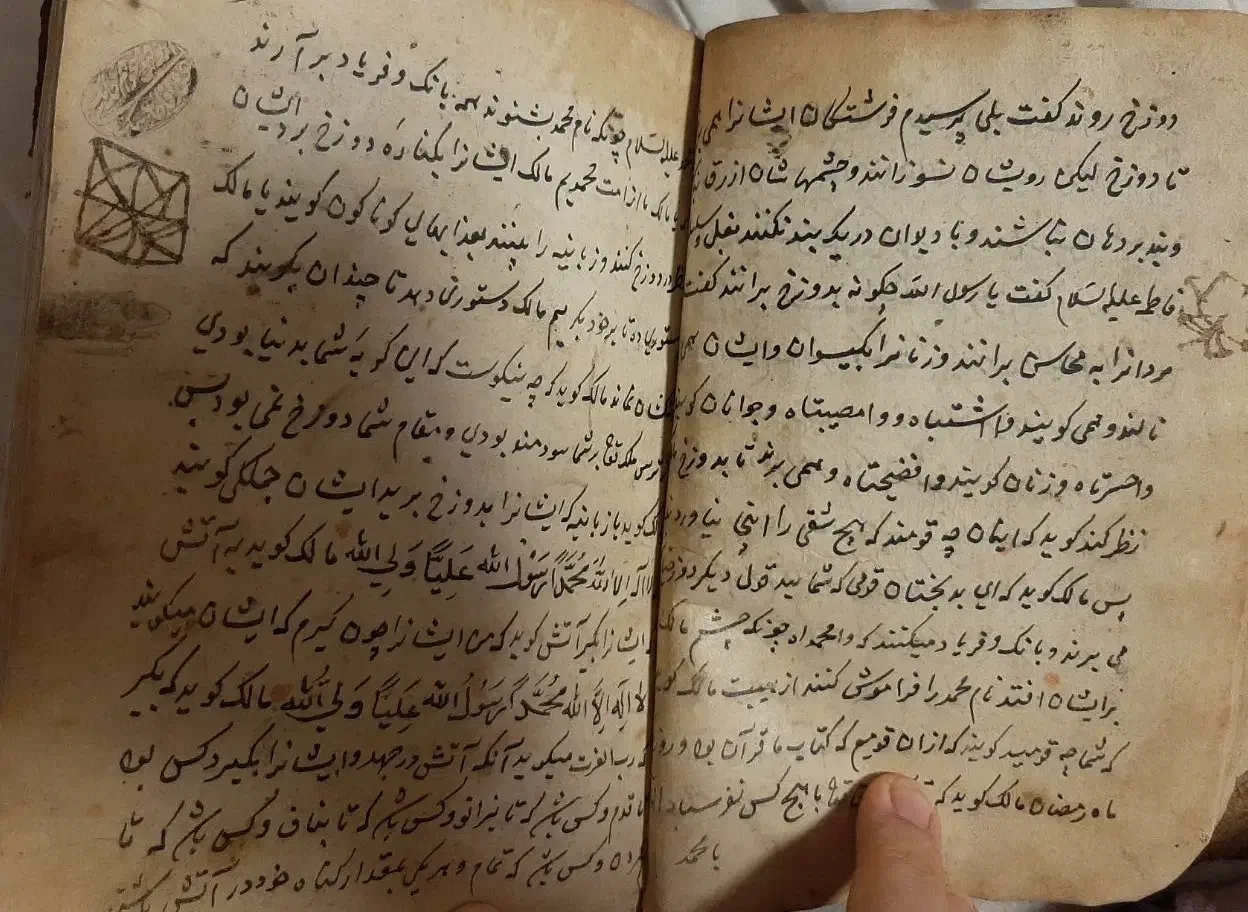 دوزخ روند گفت بلی پرسیدم فرشتگان ایشانرا همی
تا دوزخ لیکن رویشان نسوزانند و چشمهاشان ازرق
و بند بر دهان نباشند و با دیوان در یک بند نکنند نعل و
فاطمه علیه السلام گفت یا رسول الله چگونه بدوزخ برانند گفت
مردانرا به محاسن برانند و زنانرا بگیسوان و ایشان همی
نالند و همی گویند وا شتباه و وا مصیبتاه و جوانان گویند
وا حسرتاه و زنان گویند وا فضیحتاه و همی برند تا بدوزخ
نظر کند گوید که اینان چه قومند که هیچ شقی را اینجا نیاوردند
پس مالک گوید که ای بدبختان قومی که شمایید قول دیگر دوزخ
می برند و بانک و فریاد میکنند که وا محمداه چونکه چشم مالک
برایشان افتد نام محمد را فراموش کنند از هیبت مالک گوید
که شما چه قومید گویند که ازان قومیم که کتاب ما قرآن بود و روزه
ماه رمضان مالک گوید که با هیچ کس نفرستاد
یا محمد
علیه السلام چونکه نام محمد بشنوند همه بانک و فریاد بر آرند
یا مالک ما از امت محمدیم مالک ایشانرا بکناره دوزخ برد ایشان
در دوزخ کنند و زبانیه را ببینند بعذابهای گوناگون گویند یا مالک
ده تا بر خود بگرییم مالک دستوری دهد تا چندان بگریند که
نماند مالک گوید که چه نیکوست که این گریه شما بدنیا بودی
ترس ملک تعالی بر شما سودمند بودی و مقام شما دوزخ نمی بود پس
مالک گوید با زبانیه که ایشانرا بدوزخ برید ایشان جملگی گویند
لا اله الا الله محمدا رسول الله علیا ولی الله مالک گوید به آتش
ایشانرا بگیر آتش گوید که من ایشانرا چون گیرم که ایشان میگویند
لا اله الا الله محمدا رسول الله علیا ولی الله مالک گوید که بگیر
که رب العزت میگوید آنکه آتش در جهد و ایشانرا بگیرد کس بود
تا قدم و کس باشد که تا بزانو و کس باشد که تا بناف و کس باشد که تا
و کس باشد که تمام و هر یک بمقدار گناه خود در آتش باشند